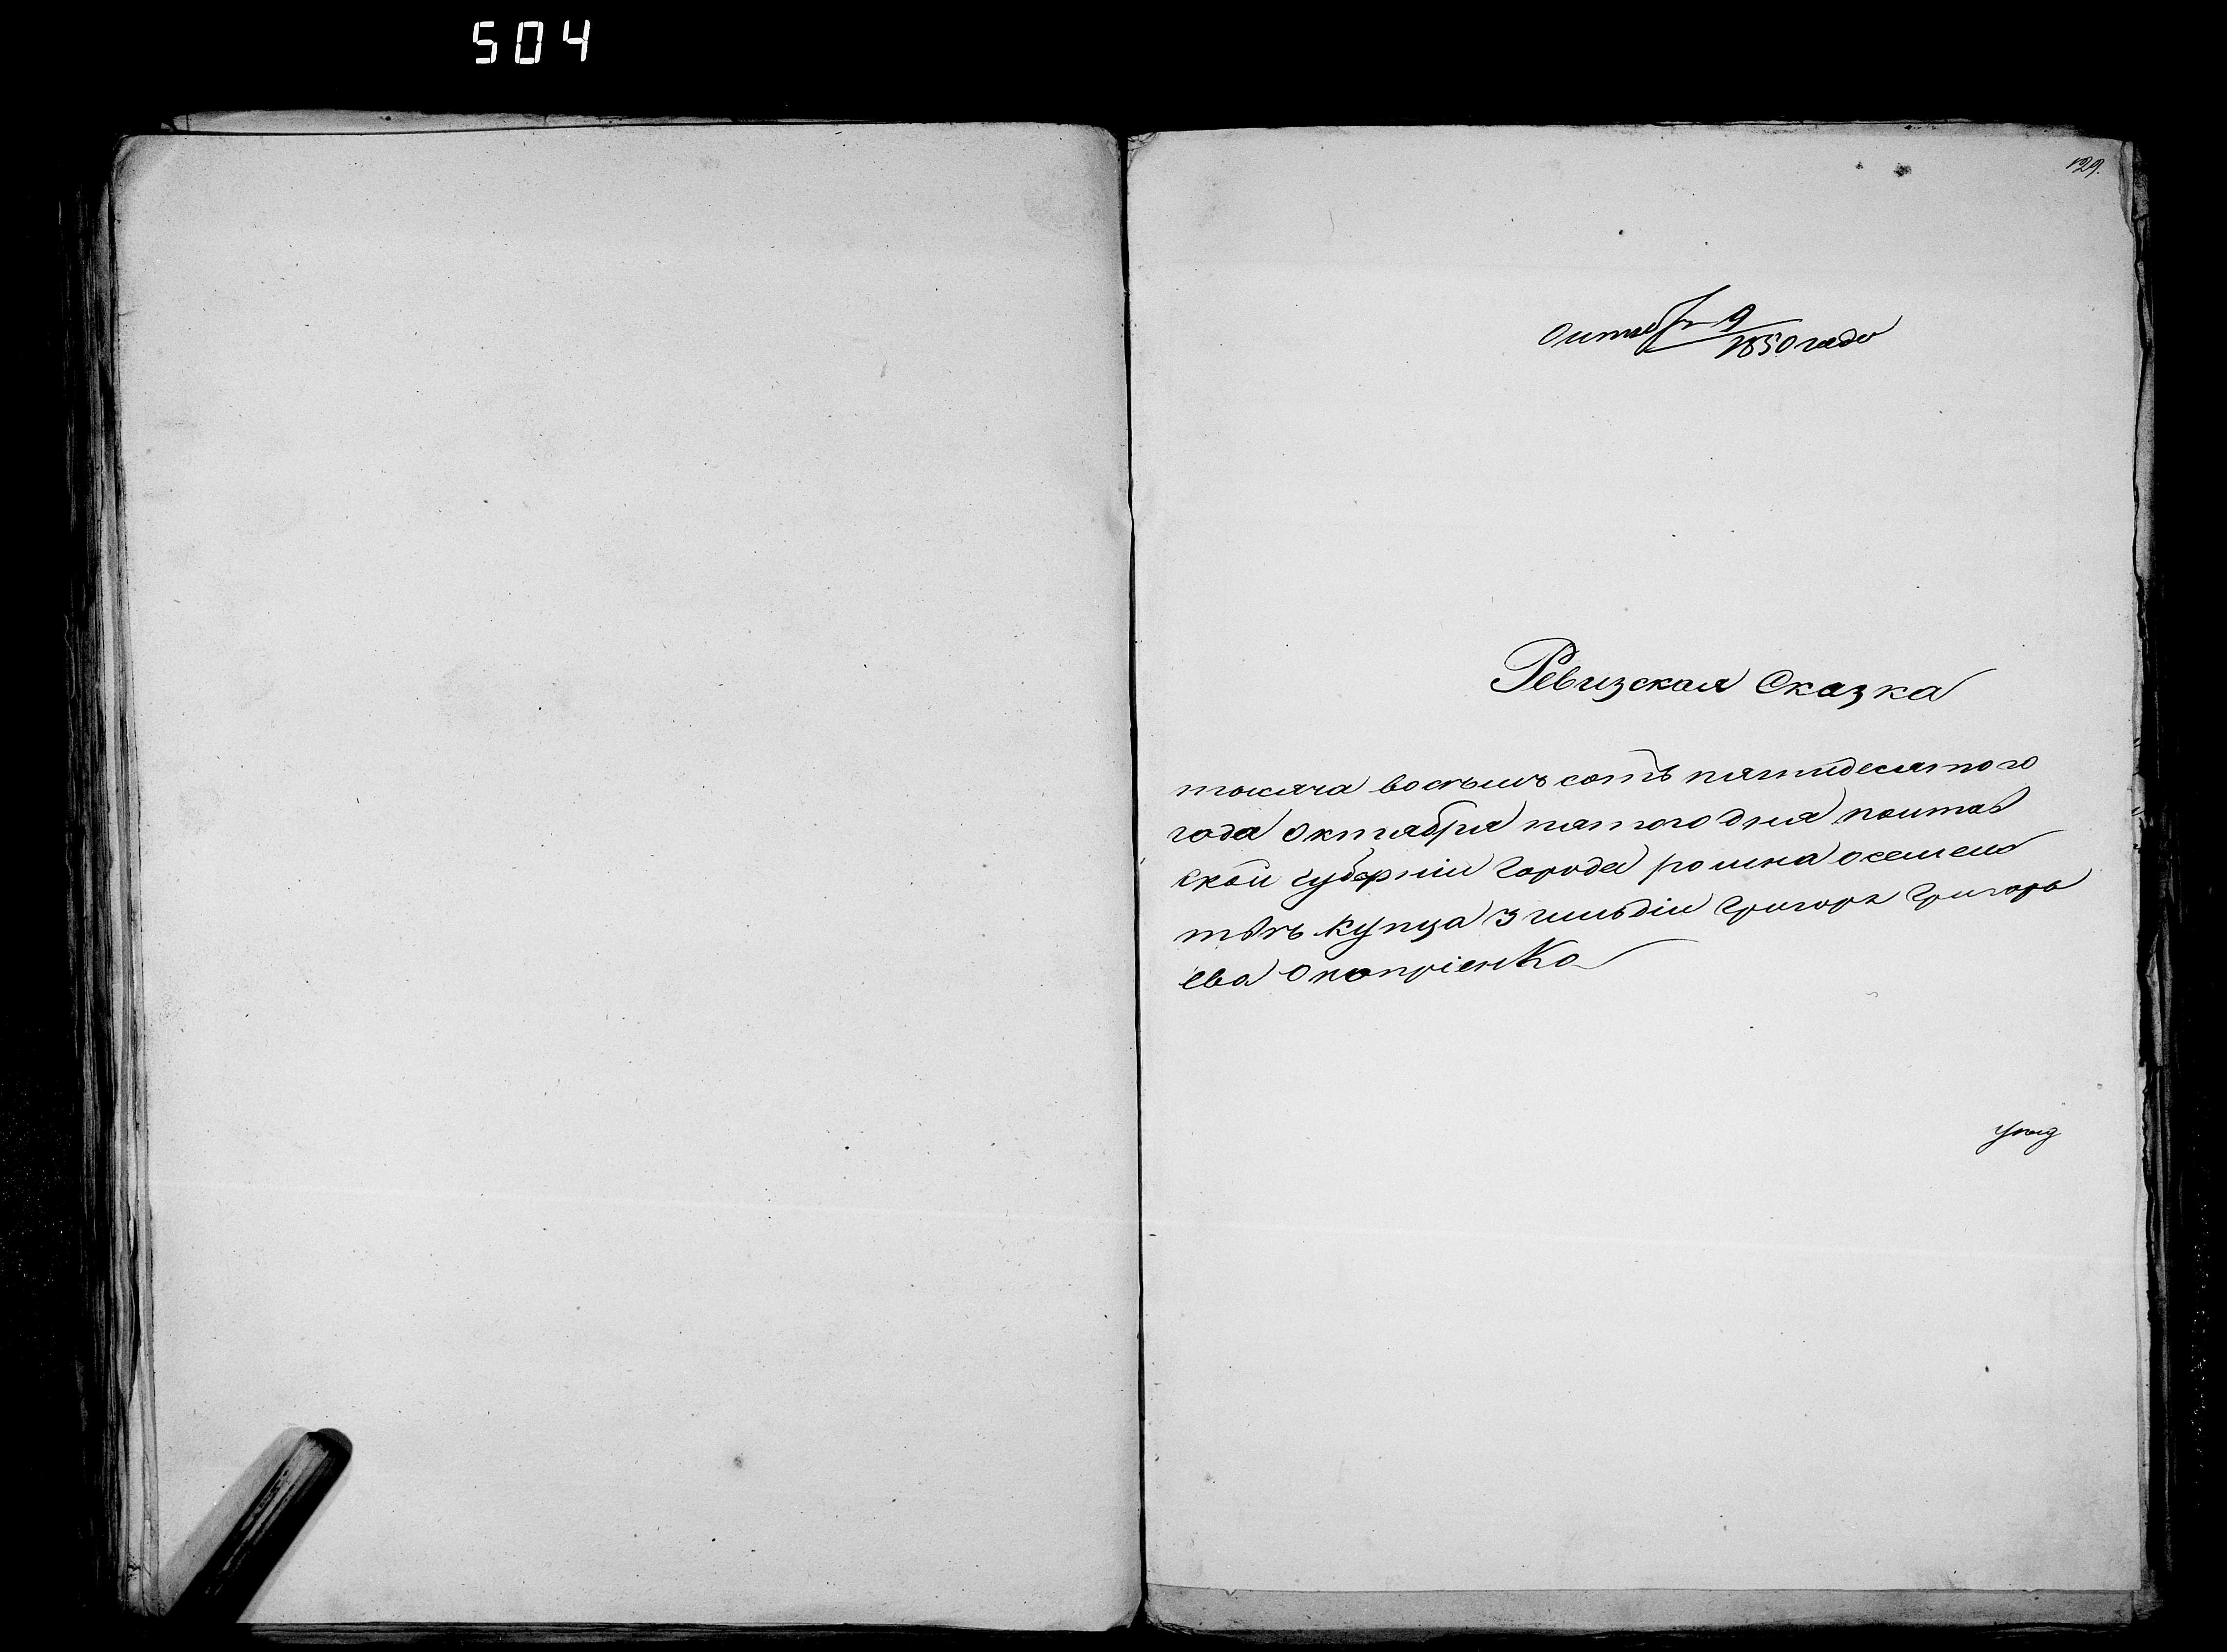 504
129.
Октября 9
1850 года
Ревизская Сказка
тысяча восемь сотъ пятидесятого
года Октября пятого дня полтав
ской губерніи города ромна о семей
купца 3 гильдіи Григоря Григорь
ева Онопріенка